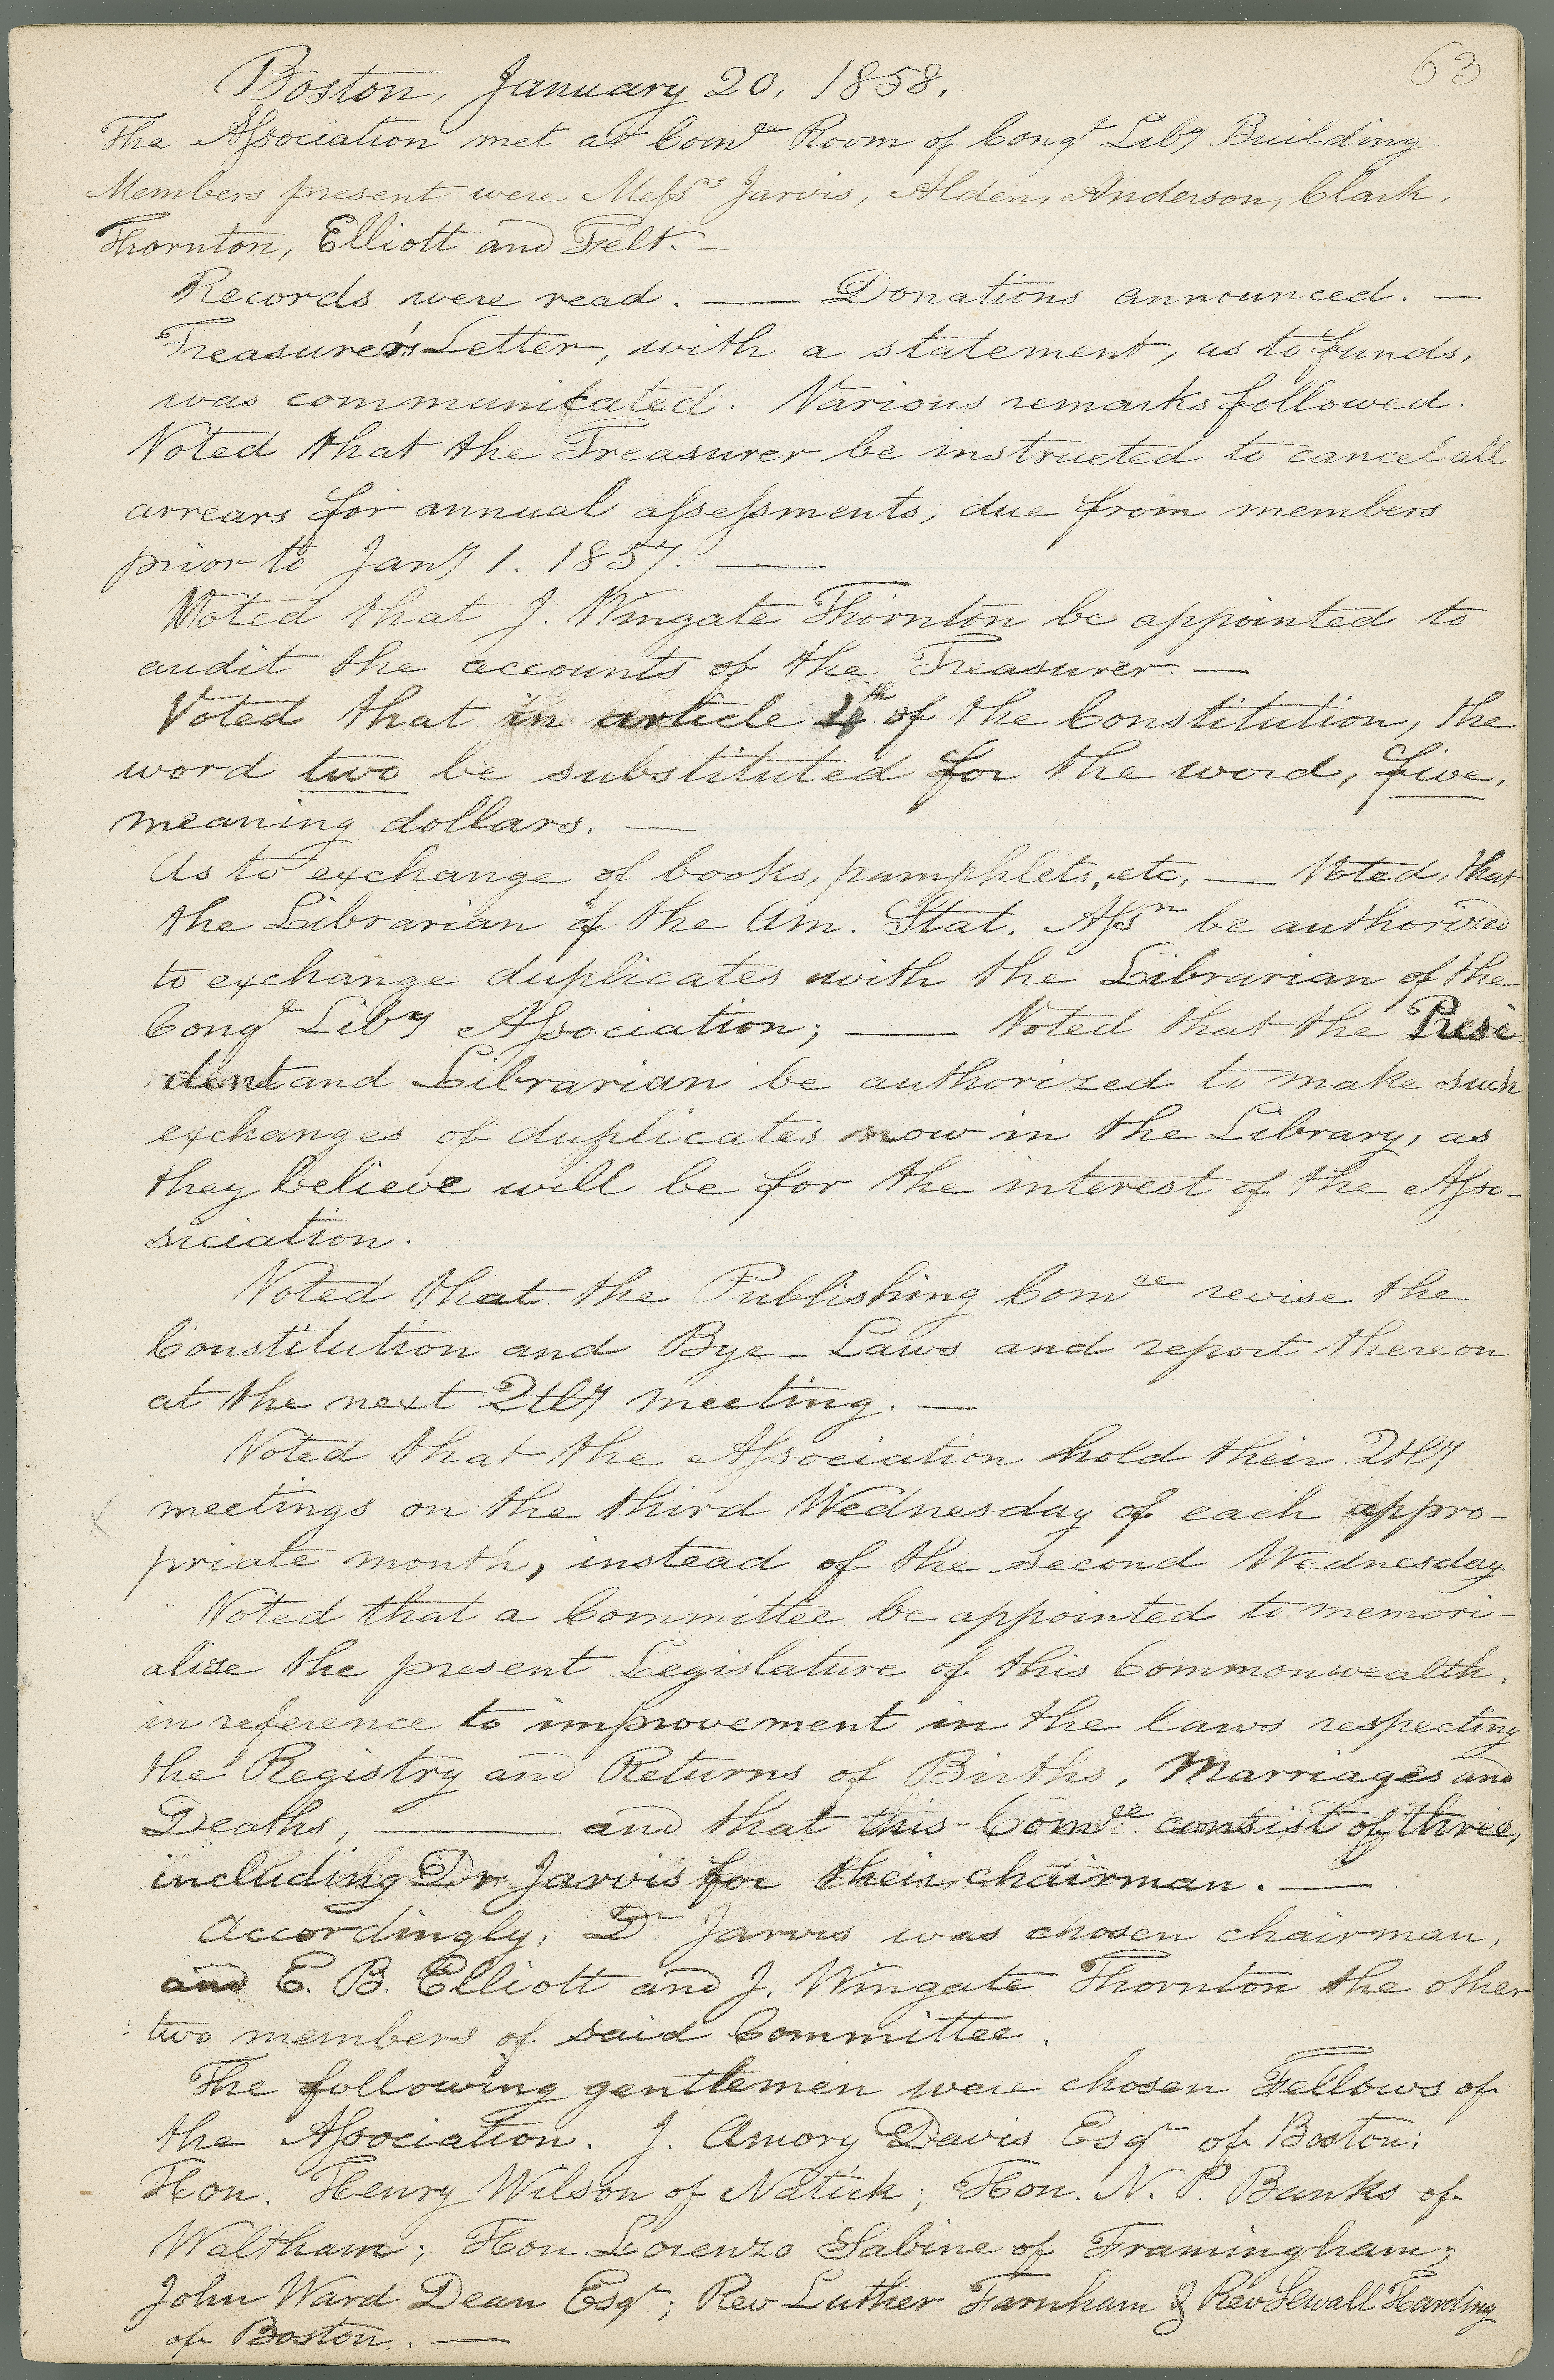 63
Boston, January 20, 1858.
The Association met at Com^ee Room of Cong^l Lib^y Building.
Members present were Mess^rs Jarvis, Alden, Anderson, Clark,
Thornton, Elliott and Felt. —
Records were read. — Donations announced. —
Treasurer's Letter, with a statement, as to funds,
was communicated. Various remarks followed.
Voted that the Treasurer be instructed to cancel all
arrears for annual assessments, due from members
prior to Jan^y 1. 1857. —
Voted that J. Wingate Thornton be appointed to
audit the accounts of the Treasurer. —
Voted that in article 4^th of the Constitution, the
word two be substituted for the word, five,
meaning dollars. —
As to exchange of books, pamphlets, etc, — Voted, that
the Librarian of the Am. Stat. Ass^n be authorized
to exchange duplicates with the Librarian of the
Cong^l Lib^y Association; — Voted that the Presi
dent and Librarian be authorized to make such
exchanges of duplicates now in the Library, as
they believe will be for the interest of the Asso-
siciation.
Voted that the Publishing Com^ee revise the
Constitution and Bye-Laws and report thereon
at the next Qtly meeting. —
Voted that the Association hold their Qtly
meetings on the third Wednesday of each appro-
priate month, instead of the second Wednesday.
Voted that a Committee be appointed to memori-
alize the present Legislature of this Commonwealth,
in reference to improvement in the laws respecting
the Registry and Returns of Births, Marriages and
Deaths, — and that this Com^ee consist of three,
including Dr Jarvis for their chairman. —
Accordingly, D^r Jarvis was chosen chairman,
and E. B. Elliott and J. Wingate Thornton the other
two members of said Committee.
The following gentlemen were chosen Fellows of
the Association. J. Amory Davis Esq^r of Boston;
Hon. Henry Wilson of Natick; Hon. N. P. Banks of
Waltham; Hon Lorenzo Sabine of Framingham;
John Ward Dean Esq^r; Rev Luther Farnham & Rev Sewall Harding
of Boston. —